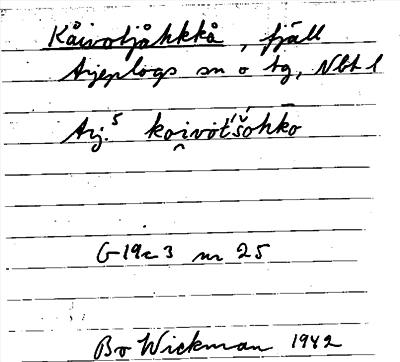 Kåivotjåhkkå, fjäll
Arjeplogs sn o tg, Nbt l
Arj.⁵ koivotšohko
G 19c 3 nr 25
Bo Wickman 1942